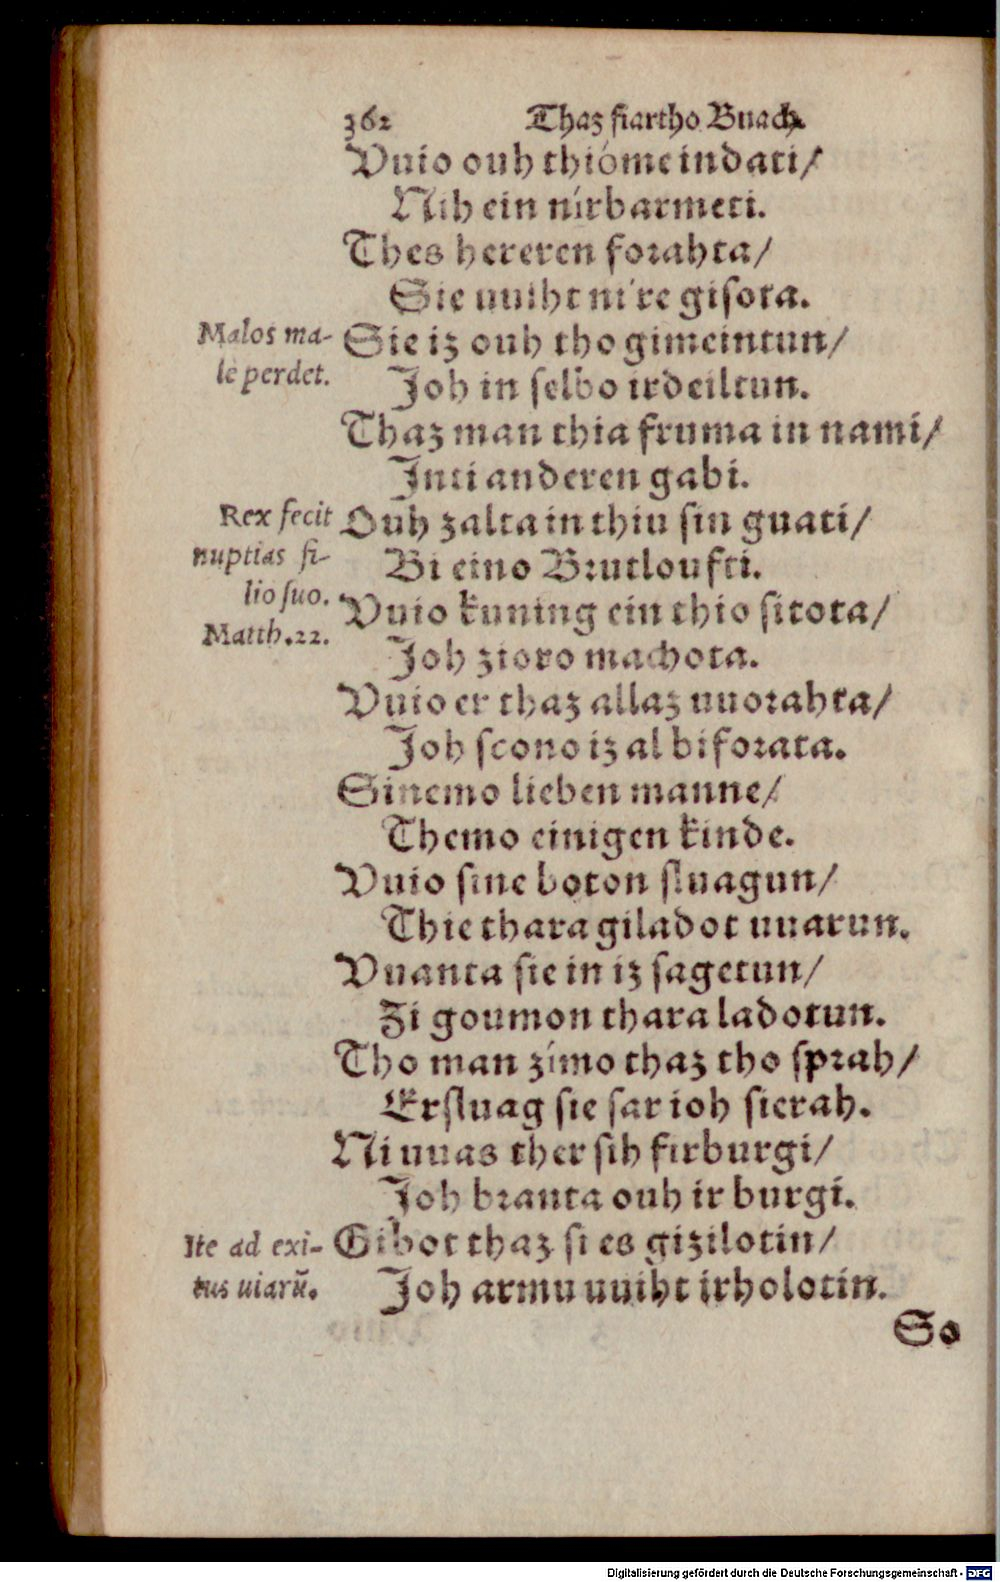 362 Thaz fiartho Buach.
Vuio ouh thióme indati/
Nih ein nírbarmeti.
Thes hereren forahta/
Sie uuiht ni're gisota.
Malos ma-
le perdet.
Sie iz ouh tho gimeintun/
Joh in selbo irdeiltun.
Thaz man thia fruma in namí/
Inti anderen gabi.
Rex fecit
nuptias fi-
lio suo.
Matth.22.
Ouh zalta in thiu sin guati/
Bi eino Brutloufti.
Vuio kuning ein thio sitota/
Joh zioro machota.
Vuio er thaz allaz uuorahta/
Joh scono iz al biforata.
Sinemo lieben manne/
Themo einigen kinde.
Vuio sine boton sluagun/
Thie thara giladot uuarun.
Vuanta sie in iz sagetun/
Zi goumon thara ladotun.
Tho man zímo thaz tho sprah/
Ersluag sie sar ioh sierah.
Ni uuas ther sih firburgi/
Joh branta ouh ir burgi.
Ite ad exi-
tus uiarū.
Gibot thaz si es gizilotin/
Joh armu uuiht irholotin.
So
Digitalisierung gefördert durch die Deutsche Forschungsgemeinschaft - DFG